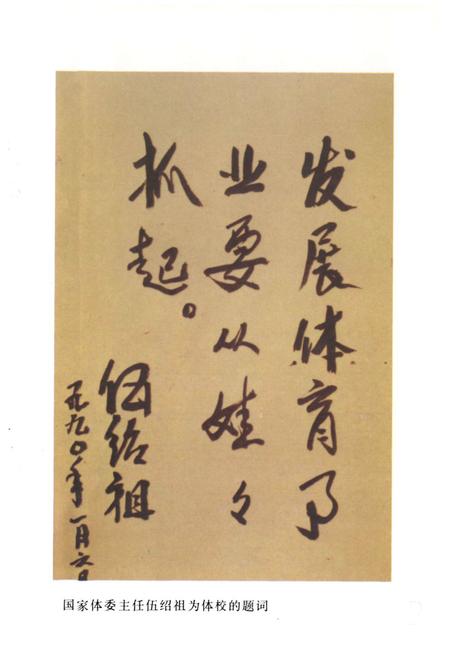 发展体育事
业要从娃々
抓起。
伍绍祖
一九九〇年一月六日
国家体委主任伍绍祖为体校的题词